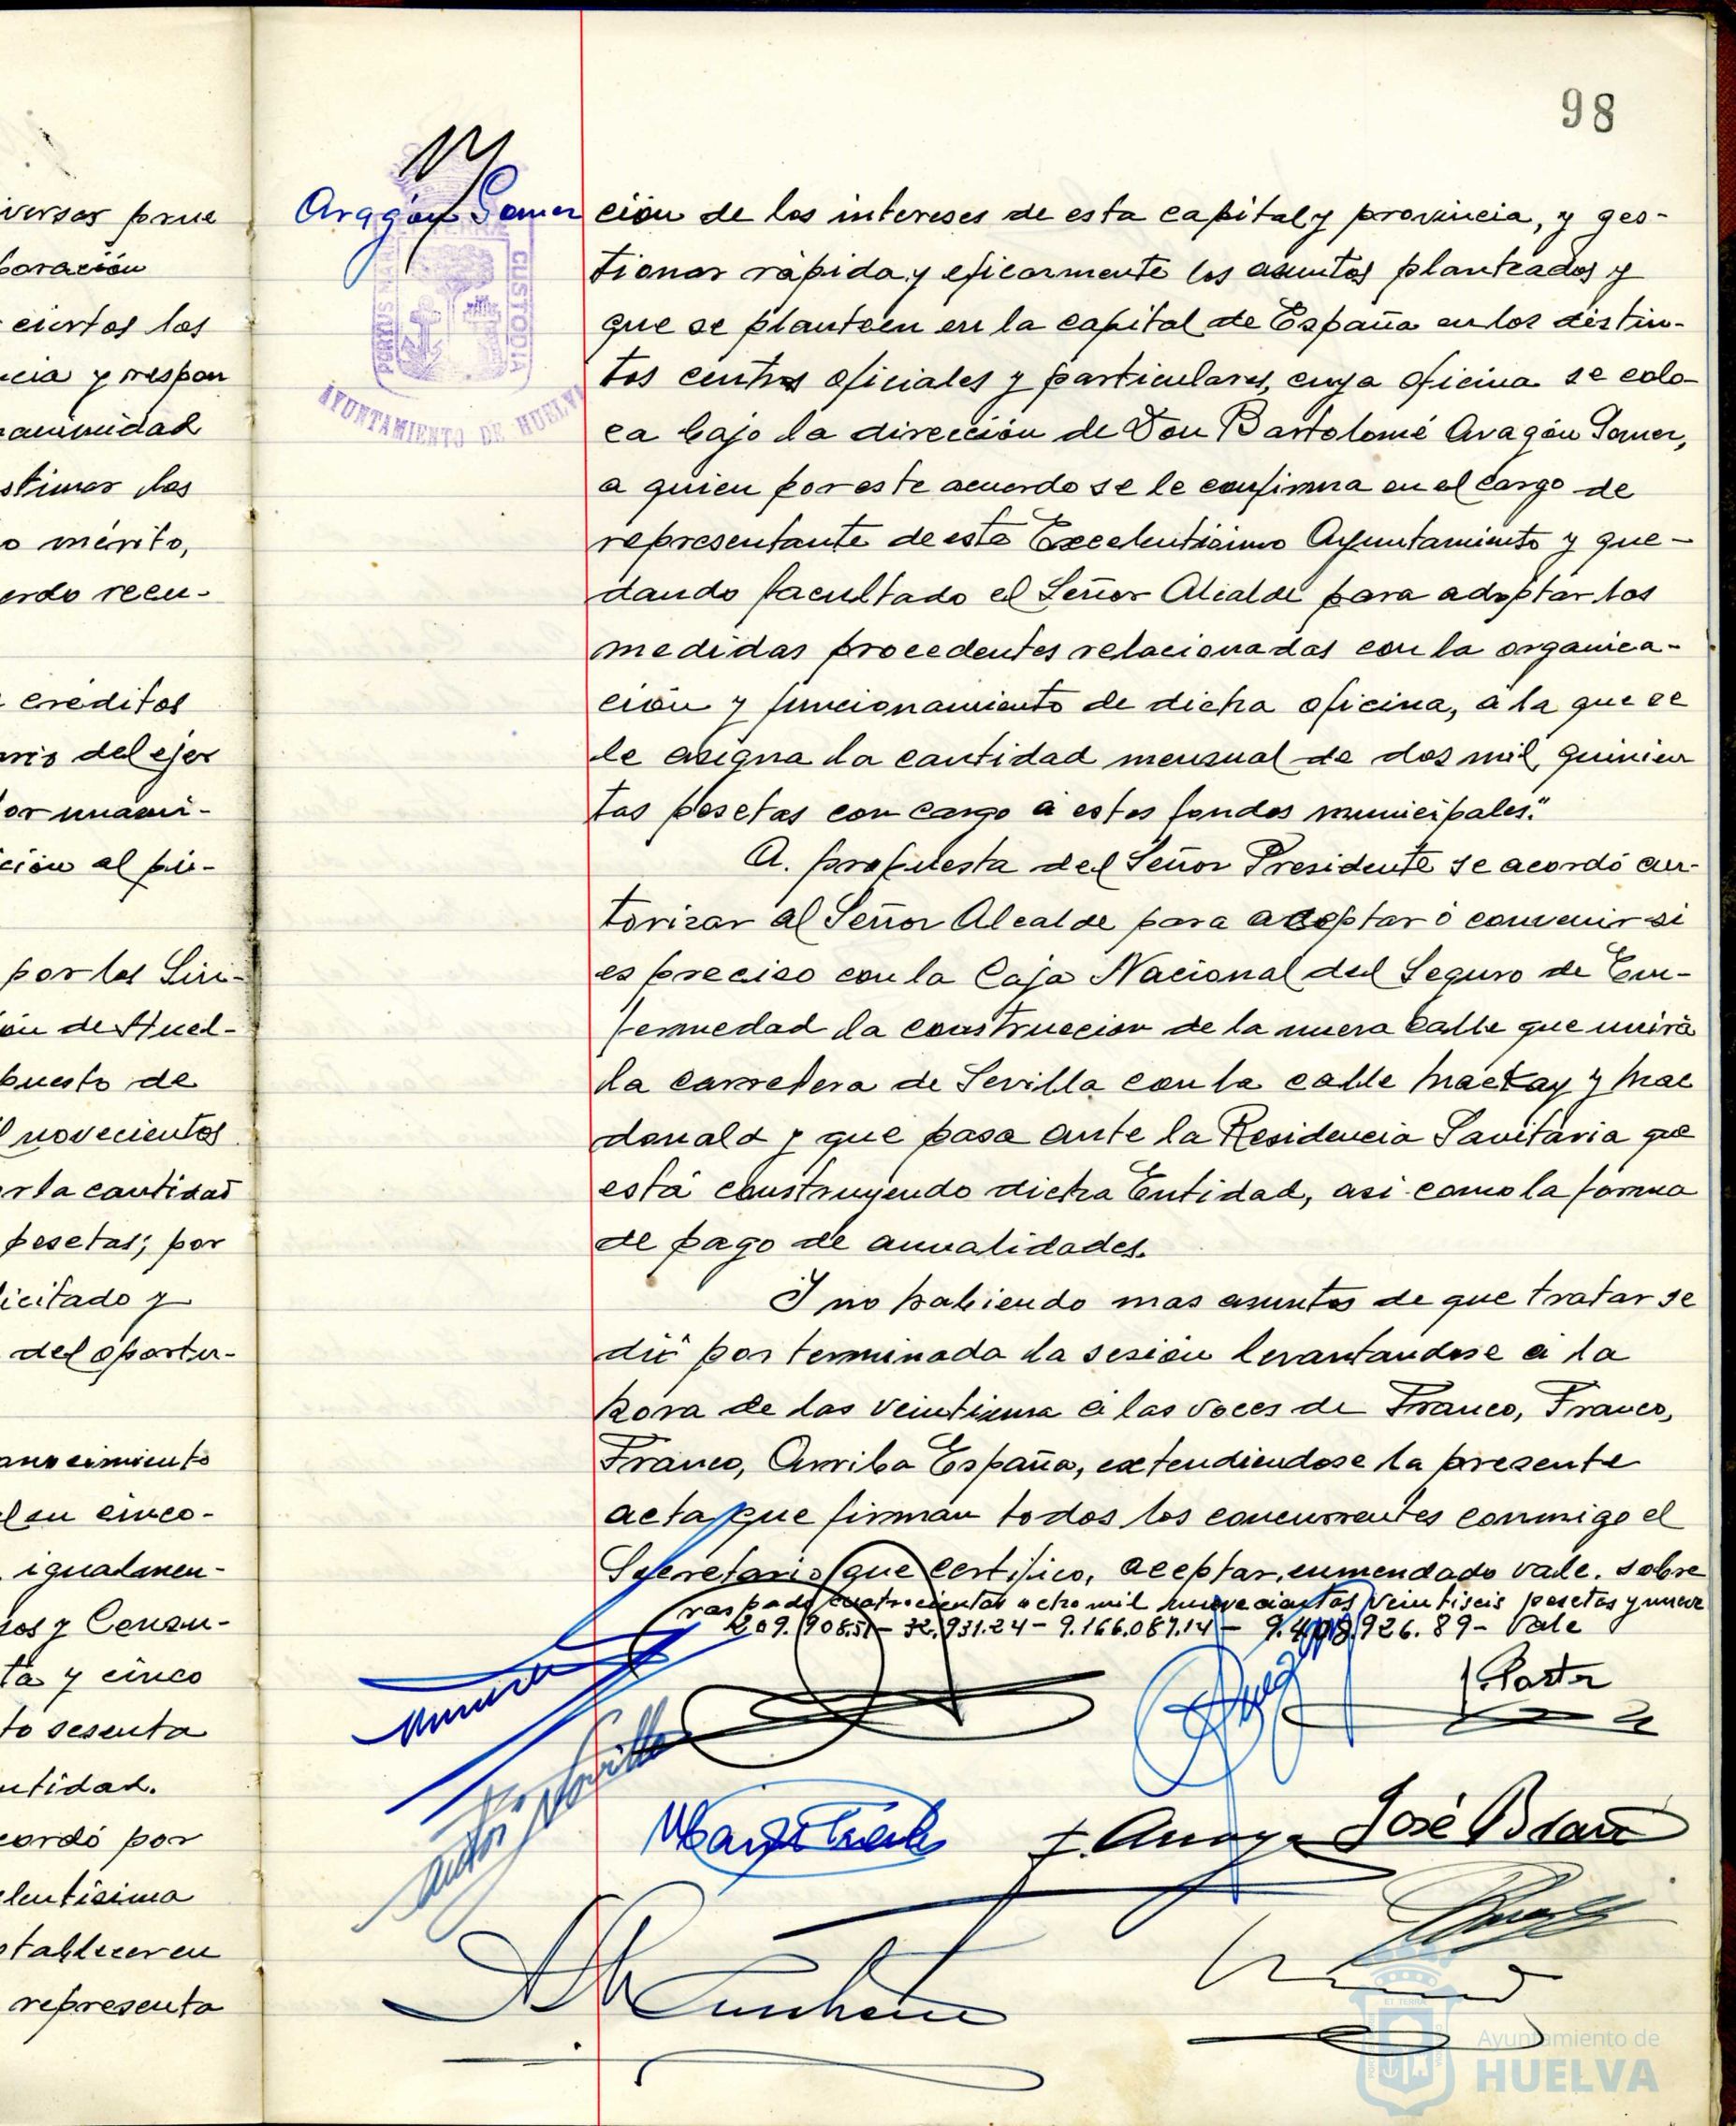 98
iversas prue
boración
ciertos los
ncia y respon
animidad
stimar los
o mérito,
erdo recu-
créditos
ario del ejer
or unani-
ción al pú-
por los Sin-
ón de Huel-
puesto de
novecientos
r la cantidad
pesetas; por
licitado y
del oportu-
onocimiento
cinco-
igualmen-
sos y Consu-
ta y cinco
to sesenta
ntidad.
cordó por
lentísima
stablecer en
representa
Aragón Gomer
PORTUS MARIS ET TERRA CUSTODIA
AYUNTAMIENTO DE HUELVA
ción de los intereses de esta capital y provincia, y ges-
tionar rápida y eficazmente los asuntos planteados y
que se planteen en la capital de España en los distin-
tos centros oficiales y particulares, cuya oficina se colo-
ca bajo la dirección de Don Bartolomé Aragón Gomer,
a quien por este acuerdo se le confirma en el cargo de
representante de este Excelentísimo Ayuntamiento y que-
dando facultado el Señor Alcalde para adoptar las
medidas procedentes relacionadas con la organiza-
ción y funcionamiento de dicha oficina, a la que se
le asigna la cantidad mensual de dos mil quinien
tas pesetas con cargo a estos fondos municipales."
A propuesta del Señor Presidente se acordó au-
torizar al Señor Alcalde para aceptar ó convenir si
es preciso con la Caja Nacional del Seguro de En-
fermedad la construccion de la nueva calle que unirá
la carretera de Sevilla con la calle Mackay y Mac
donald y que pasa ante la Residencia Sanitaria que
está construyendo dicha Entidad, asi como la forma
de pago de anualidades.
Y no habiendo mas asuntos de que tratar se
dió por terminada la sesión levantandose a la
hora de las veintiuna a las voces de Franco, Franco,
Franco, Arriba España, extendiendose la presente
acta que firman todos los concurrentes conmigo el
Secretario que certifico, aceptar, enmendado vale. Sobre
raspado cuatrocientas ocho mil nuevecientas veintiseis pesetas y nueve
209.908.51 - 32.931.24 - 9.166.087.14 - 9.408.926.89 - Vale
José Blan
Ayuntamiento de
HUELVA